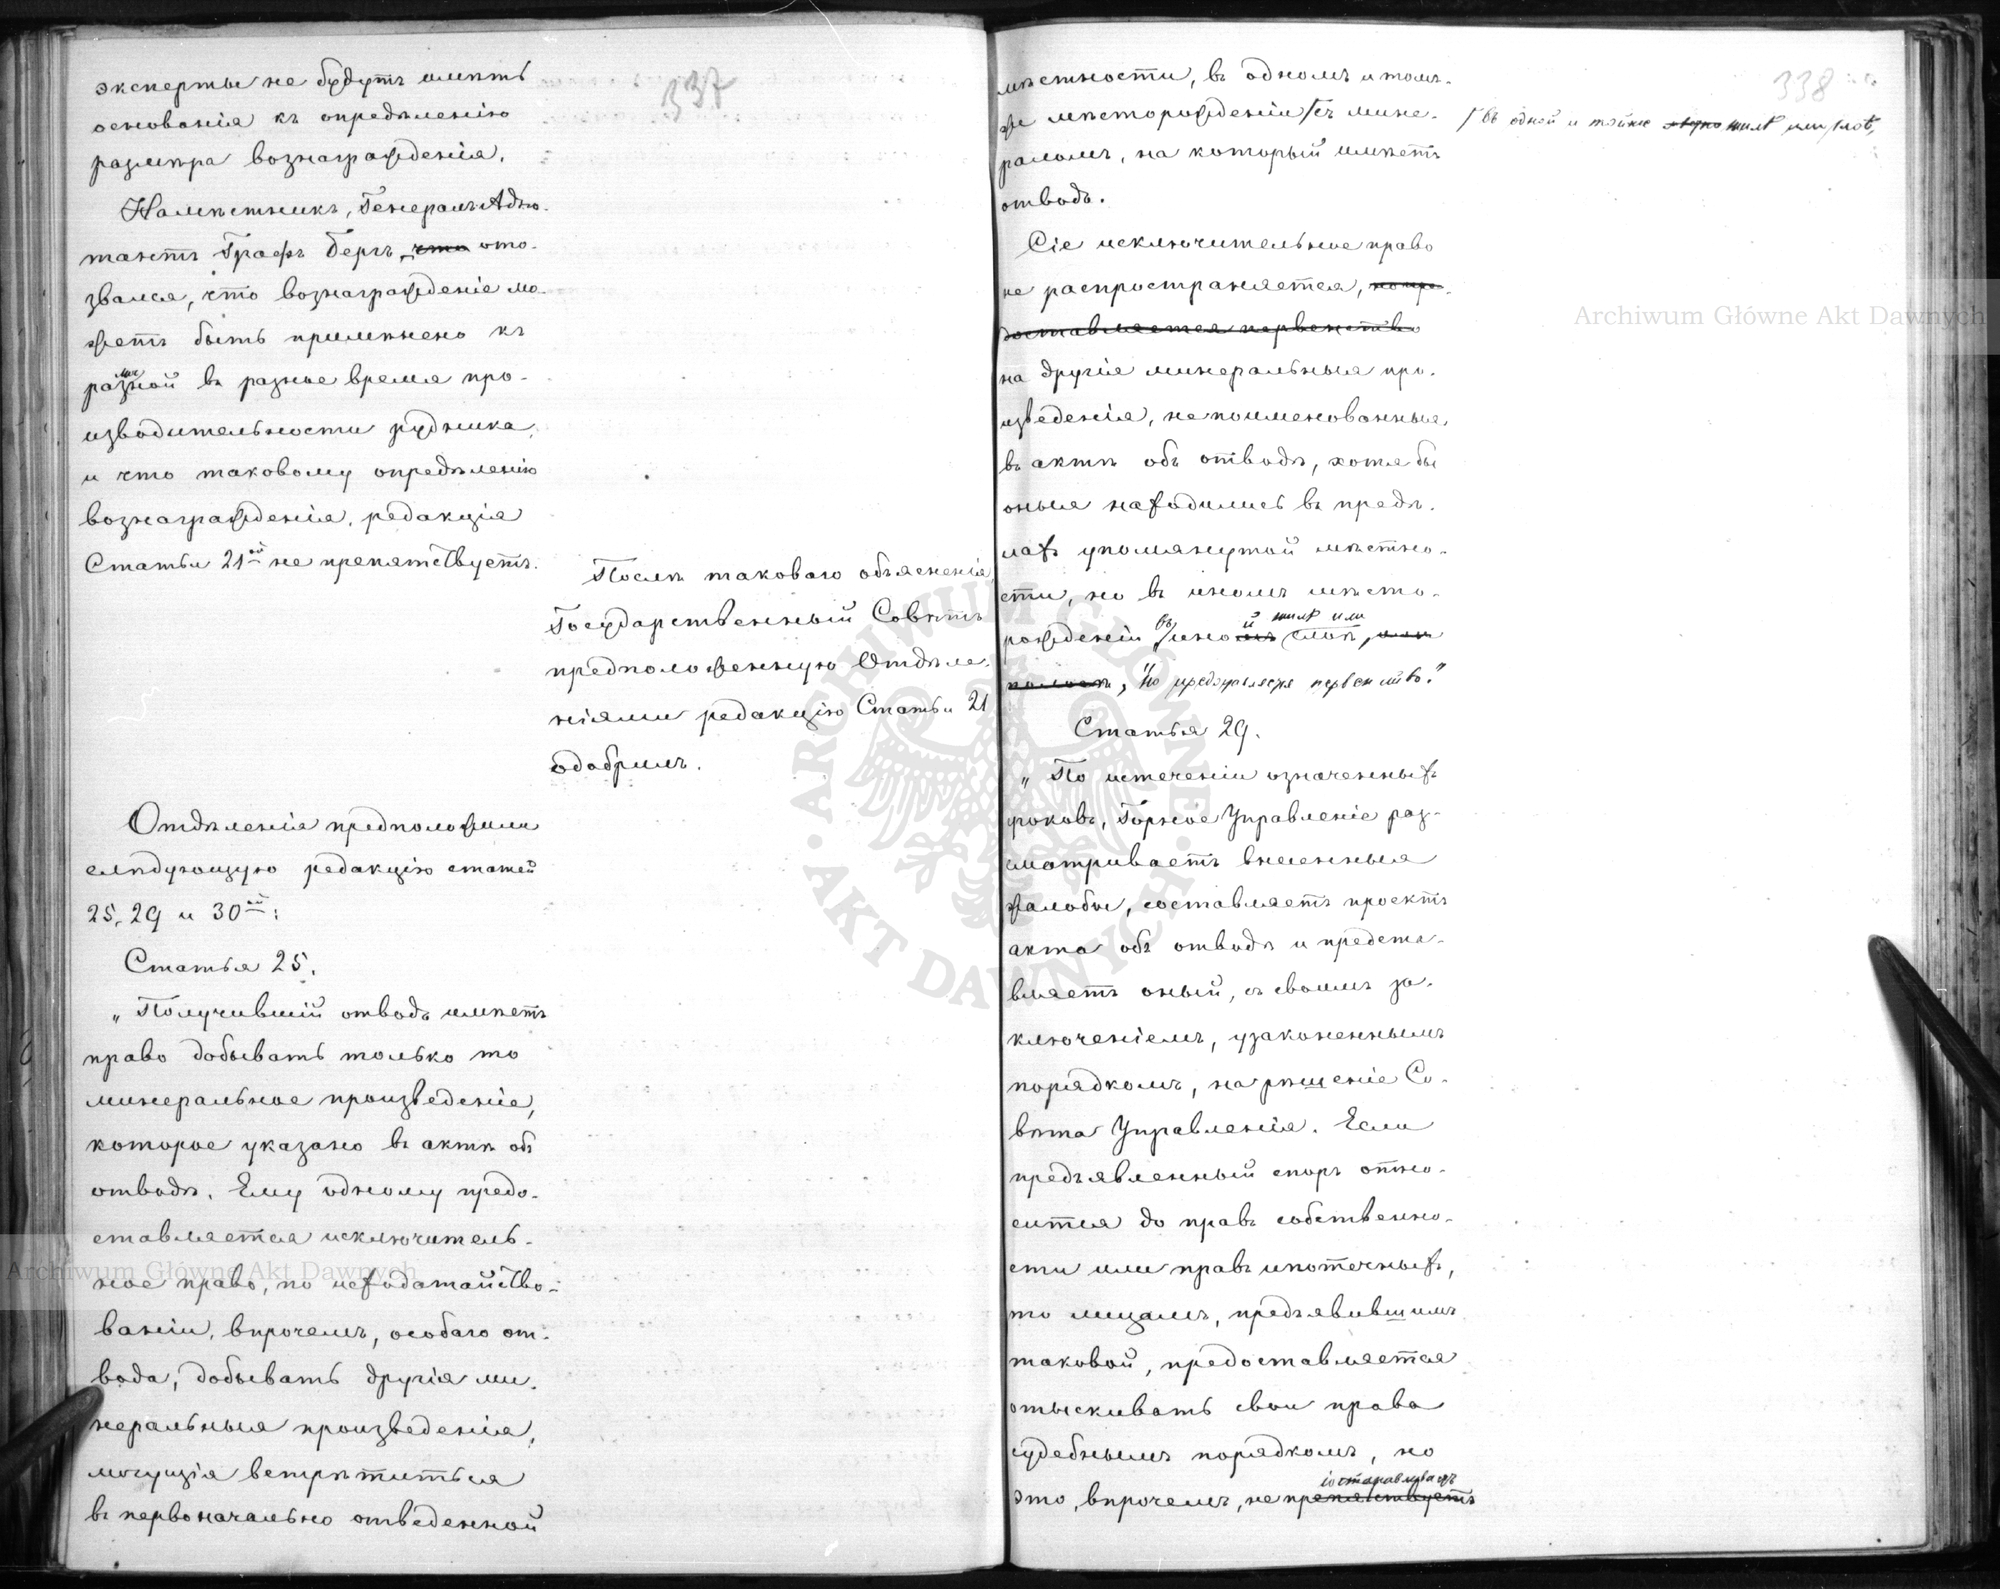 337
эксперты не будутъ имѣть
основанія къ опредѣленію
размѣра вознагражденія.
Намѣстникъ, Генералъ Адъю-
тантъ Графъ Бергъ, что ото-
звался, что вознагражденіе мо-
жетъ быть примѣнено къ
разной въ разное время про-
изводительности рудника,
и что таковому опредѣленію
вознагражденія, редакція
Статьи 21ой не препятствуетъ.
Послѣ таковаго объясненія
Государственный Совѣтъ
предположенную Отдѣле-
ніями редакцію Статьи 21
одобрилъ.
Отдѣленія предположили
слѣдующую редакцію статей
25, 29 и 30ой:
Статья 25.
„Получившій отводъ имѣетъ
право добывать только то
минеральное произведеніе,
которое указано въ актѣ объ
отводѣ. Ему одному предо-
ставляется исключитель-
ное право, по исходатайство-
ваніи, впрочемъ, особаго от-
вода, добывать другія ми-
неральныя произведенія,
могущія встрѣтиться
въ первоначально отведенной
338
мѣстности, въ одномъ и томъ-
же мѣсторожденіи съ мине-
въ одной и тойже жилѣ или слоѣ,
раломъ, на который имѣетъ
отводъ.
Сіе исключительное право
не распространяется, но пре-
доставляется первенство
на другія минеральныя про-
изведенія, непоименованныя
въ актѣ объ отводѣ, хотя бы
оныя находились въ предѣ-
лахъ упомянутой мѣстно-
сти, но въ иномъ мѣсто-
й жилѣ или
рожденіи въ ино слоѣ, или
полосѣ, "но предоставляется первенство."
Статья 29.
„По истеченіи означенныхъ
сроковъ, Горное Управленіе раз-
сматриваетъ внесенныя
жалобы, составляетъ проектъ
акта объ отводѣ и предста-
вляетъ оный, съ своимъ за-
ключеніемъ, узаконеннымъ
порядкомъ, на рѣшеніе Со-
вѣта Управленія. Если
предъявленный споръ отно-
сится до правъ собственно-
сти или правъ ипотечныхъ,
то лицамъ, предъявившимъ
таковой, предоставляется
отыскивать свои права
судебнымъ порядкомъ, но
останавливаетъ
это, впрочемъ, не препятствуетъ
Archiwum Główne Akt Dawnych
Archiwum Główne Akt Dawnych
ARCHIWUM GŁÓWNE AKT DAWNYCH